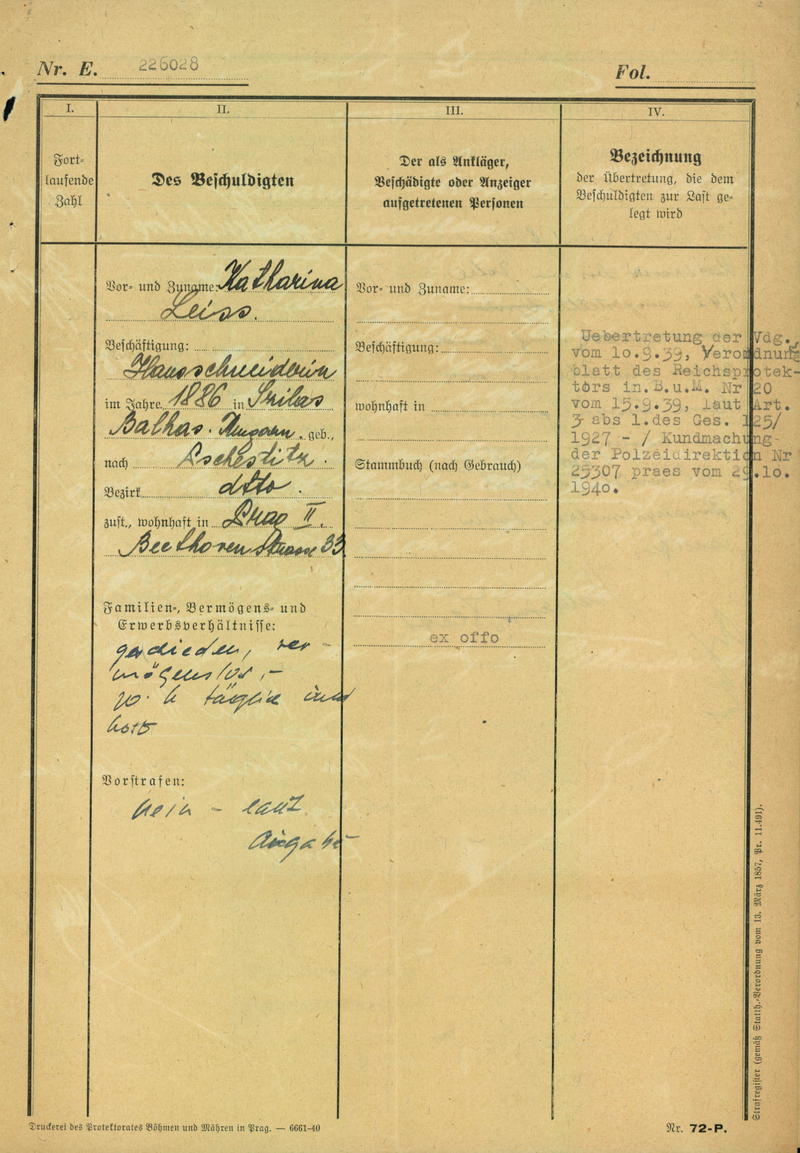 Nr. E. 226028
Fol.
I.
Fort-
laufende
Zahl
II.
Des Beschuldigten
III.
Der als Ankläger,
Beschädigte oder Anzeiger
aufgetretenen Personen
IV.
Bezeichnung
der Übertretung, die dem
Beschuldigten zur Last ge-
legt wird
Vor- und Zuname: Katharina
Leiss.
Beschäftigung:
Hausschneiderin
im Jahre 1886 in
Balhas. geb.,
nach
Bezirk dtto.
zust., wohnhaft in Prag II.
Beethoven Strasse 33
Familien-, Vermögens- und
Erwerbsverhältnisse:
ver-
mögenslos,-
Vorstrafen:
nein - laut
Angabe
Vor- und Zuname:
Beschäftigung:
wohnhaft in
Stammbuch (nach Gebrauch)
ex offo
Uebertretung der Vdg.
vom 10.9.39, Verordnung
blatt des Reichsprotek-
tors in.B.u.M. Nr 20
vom 15.9.39, laut Art.
3 abs 1.des Ges. 125/
1927 - / Kundmachung
der Polzeidirektion Nr
25307 praes vom 29.10.
1940.
Druckerei des Protektorates Böhmen und Mähren in Prag. — 6661-40
Nr. 72-P.
Strafregister (gemäß Statth.-Verordnung vom 13. März 1857, Pr. 11.491).